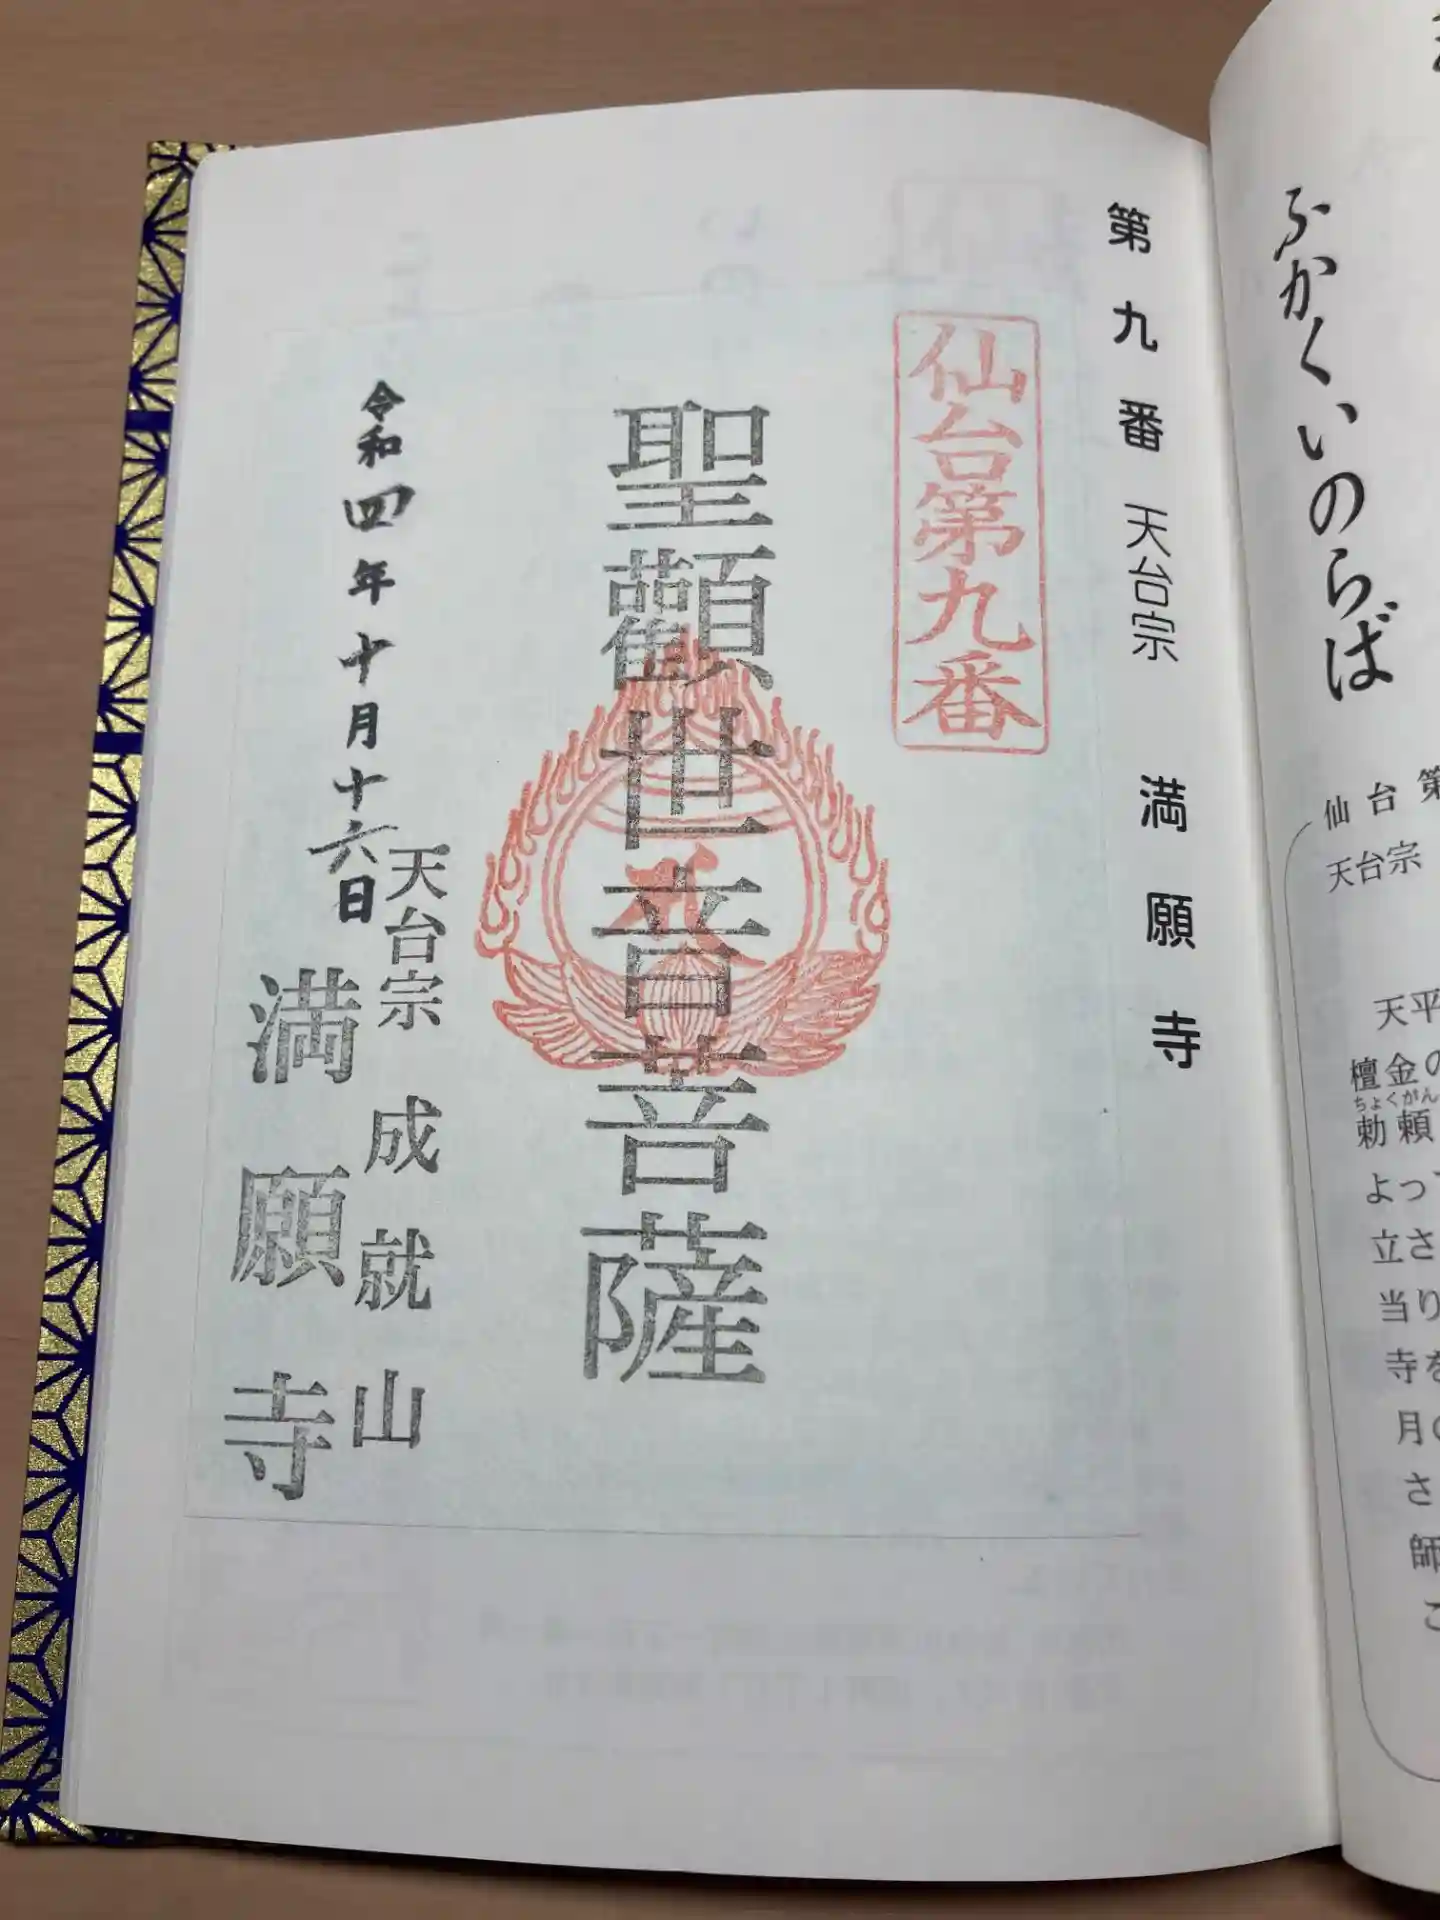 ふかくいのらば
仙台第
天台宗
天平
檀金の
ちょくがん
勅頼
よって
立さ
当り
寺を
月の
さ
師
こ
第九番 天台宗 満願寺
仙台第九番
聖觀世音菩薩
天台宗 成就山
満願寺
令和四年十月十六日